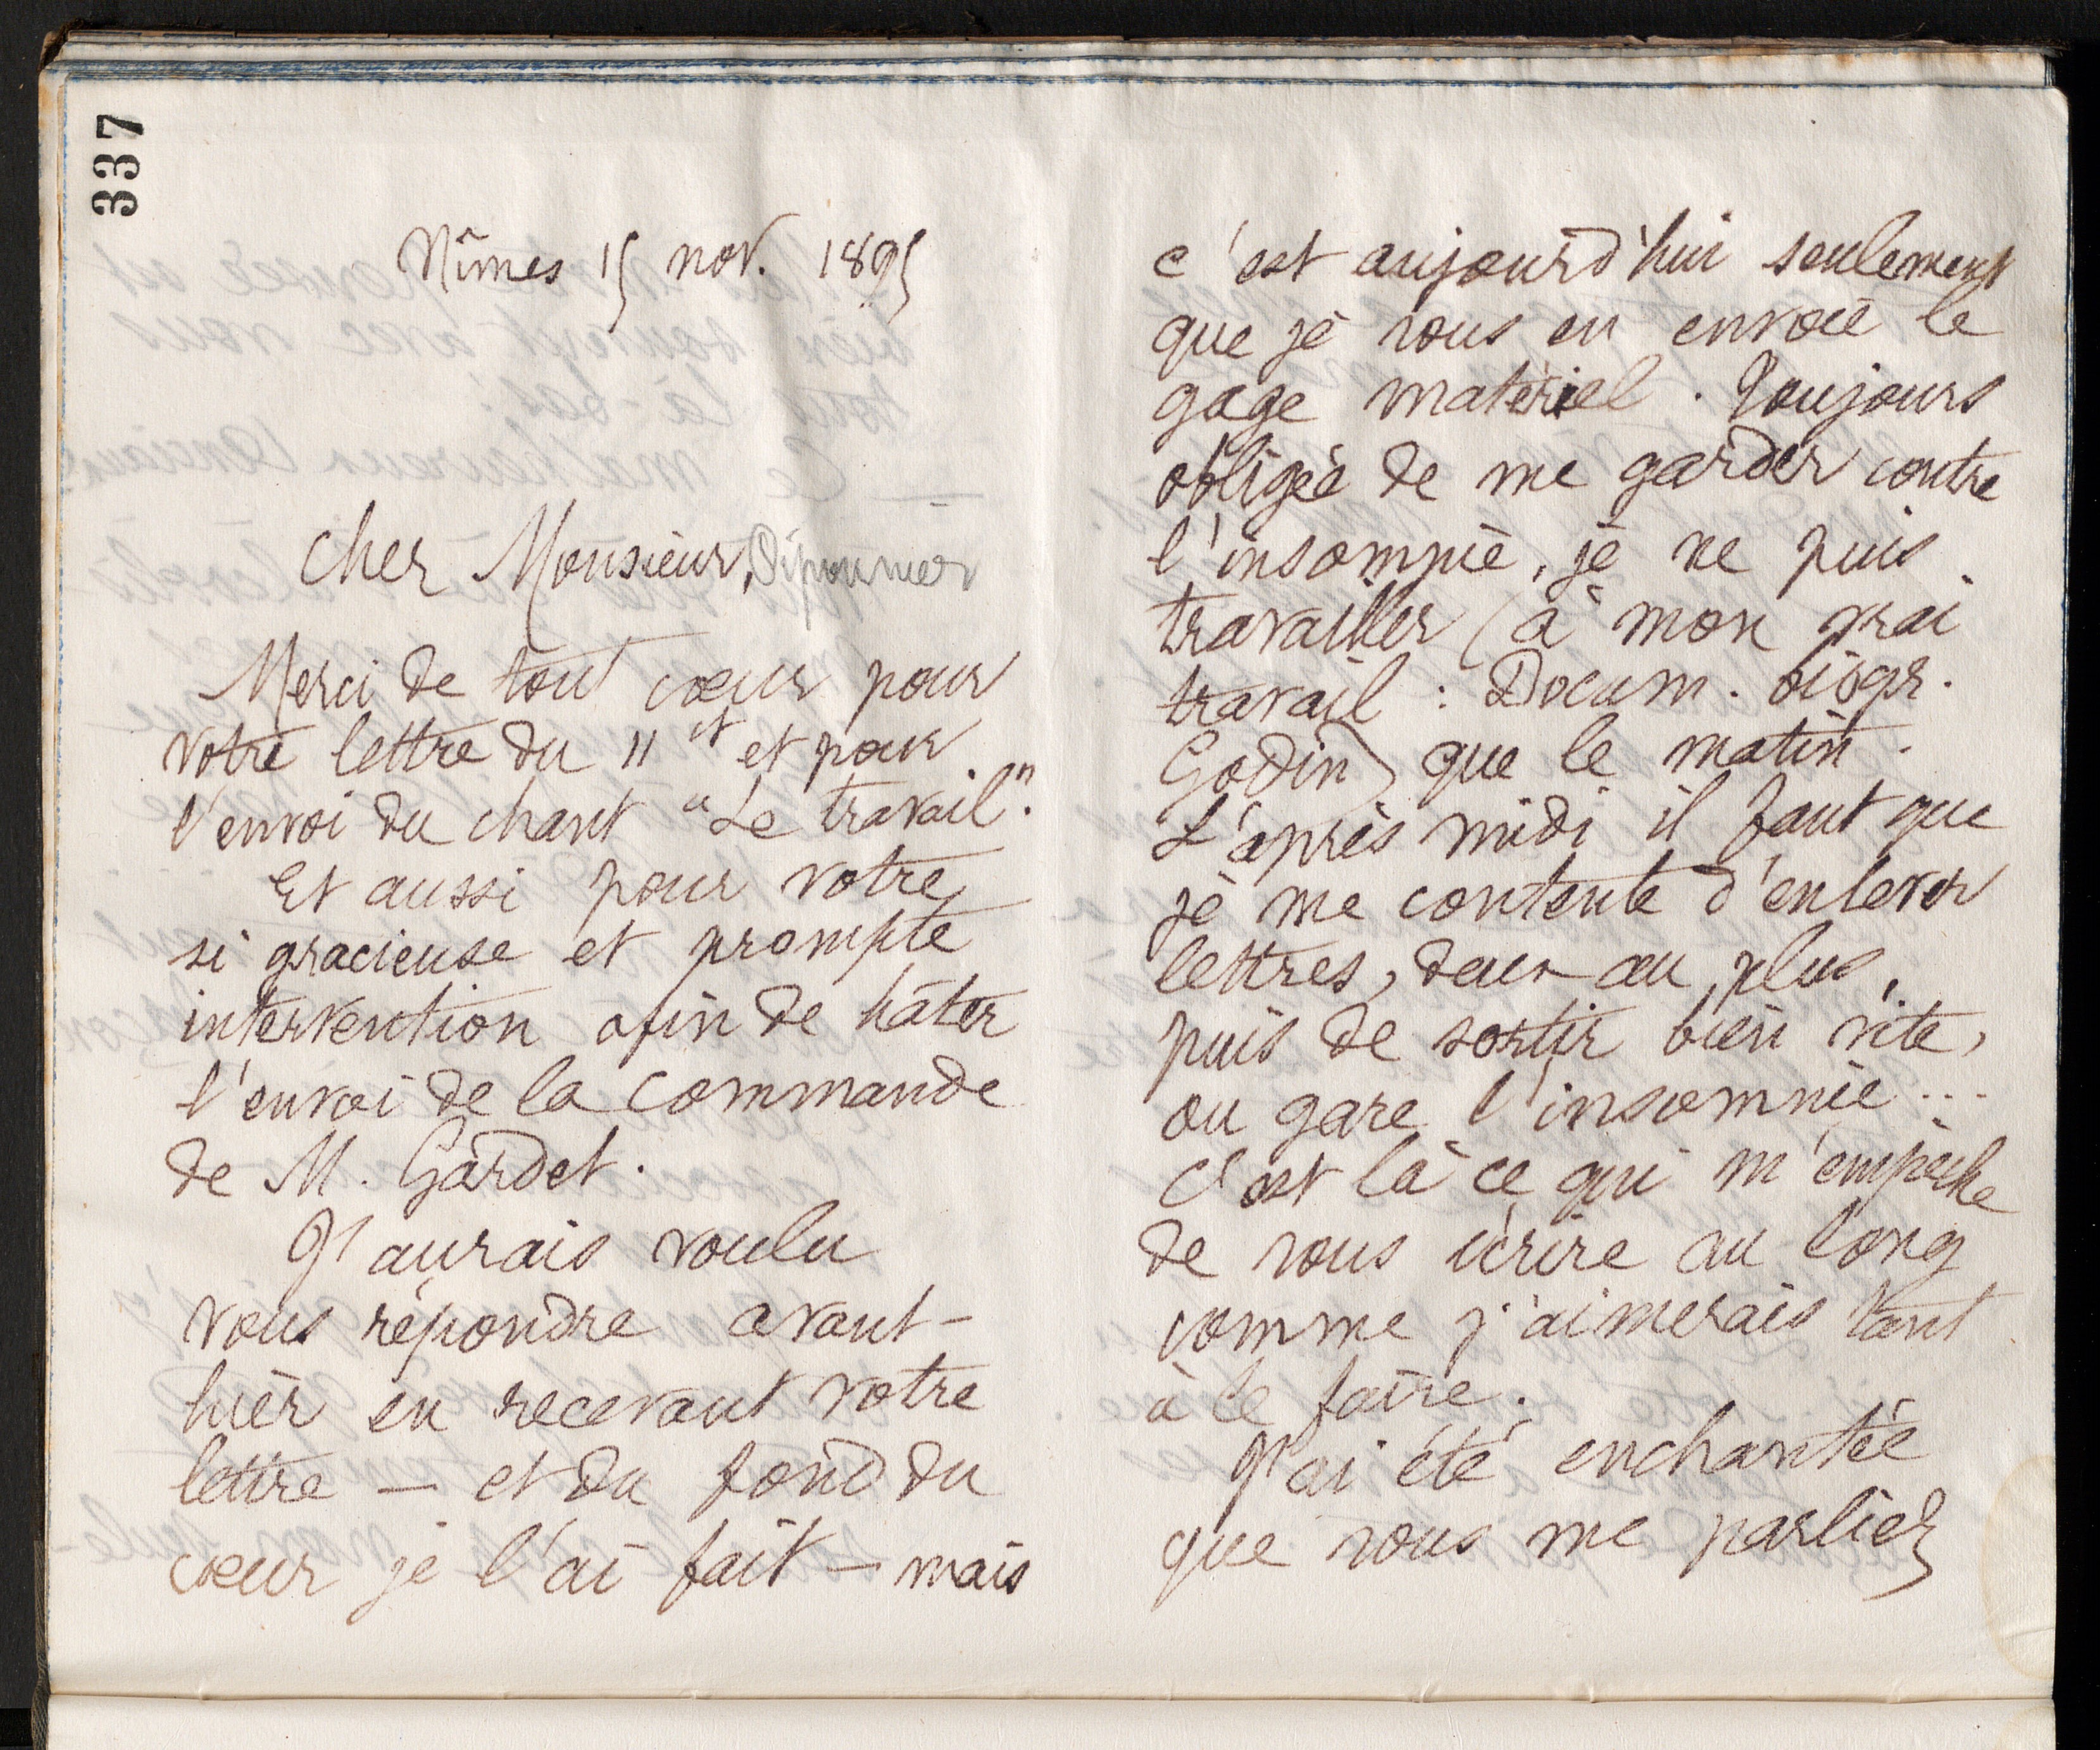 337
Nîmes 15 nov. 1895
Cher Monsieur,
Merci de tout cœur pour
votre lettre du 11 ct et pour
l'envoi du chant "Le travail".
Et aussi pour votre
si gracieuse et prompte
intervention afin de hâter
l'envoi de la commande
de M. Gardet.
J'aurais voulu
vous répondre avant-
hier en recevant votre
lettre — et du fond du
cœur je l'ai fait — mais
c'est aujourd'hui seulement
que je vous en envoie le
gage matériel. Toujours
obligée de me garder contre
l'insomnie, je ne puis
travailler (à mon vrai
travail : Docum. biogr.
Godin) que le matin.
L'après midi il faut que
je me contente d'enlever
lettres, deux au plus,
puis de sortir bien vite,
ou gare l'insomnie...
C'est là ce qui m'empêche
de vous écrire au long
comme j'aimerais tant
à le faire.
J'ai été enchantée
que vous me parliez